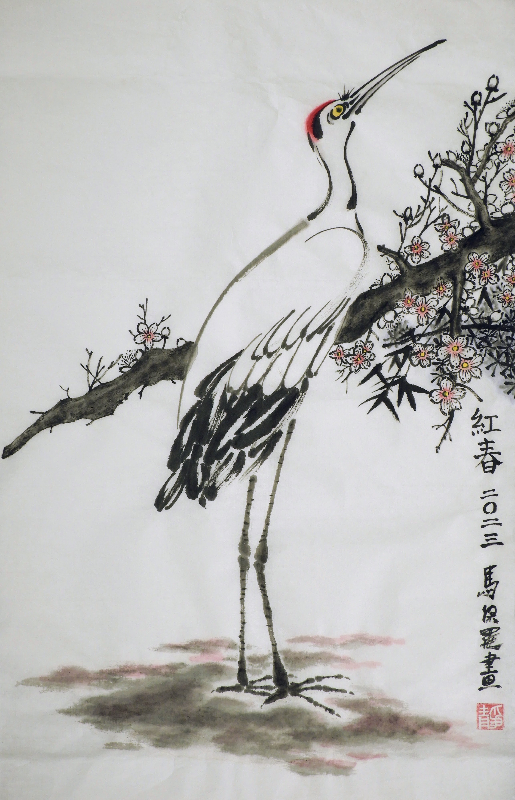 紅春 二〇二三 馬保羅畫
靜